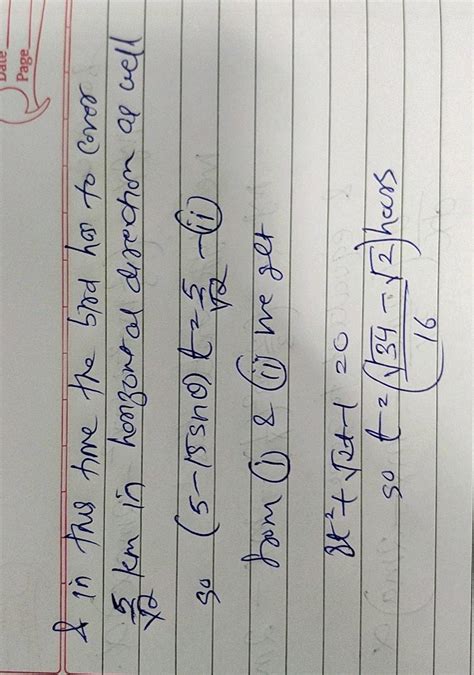 Date
Page
& in this time the bird has to cover
5/√2 km in horizontal direction as well
so (5-15sinθ) t = 5/√2 -(ii)
from (i) & (ii) we get
8t² + √2t - 1 = 0
so t = (√34 - √2 / 16) hours